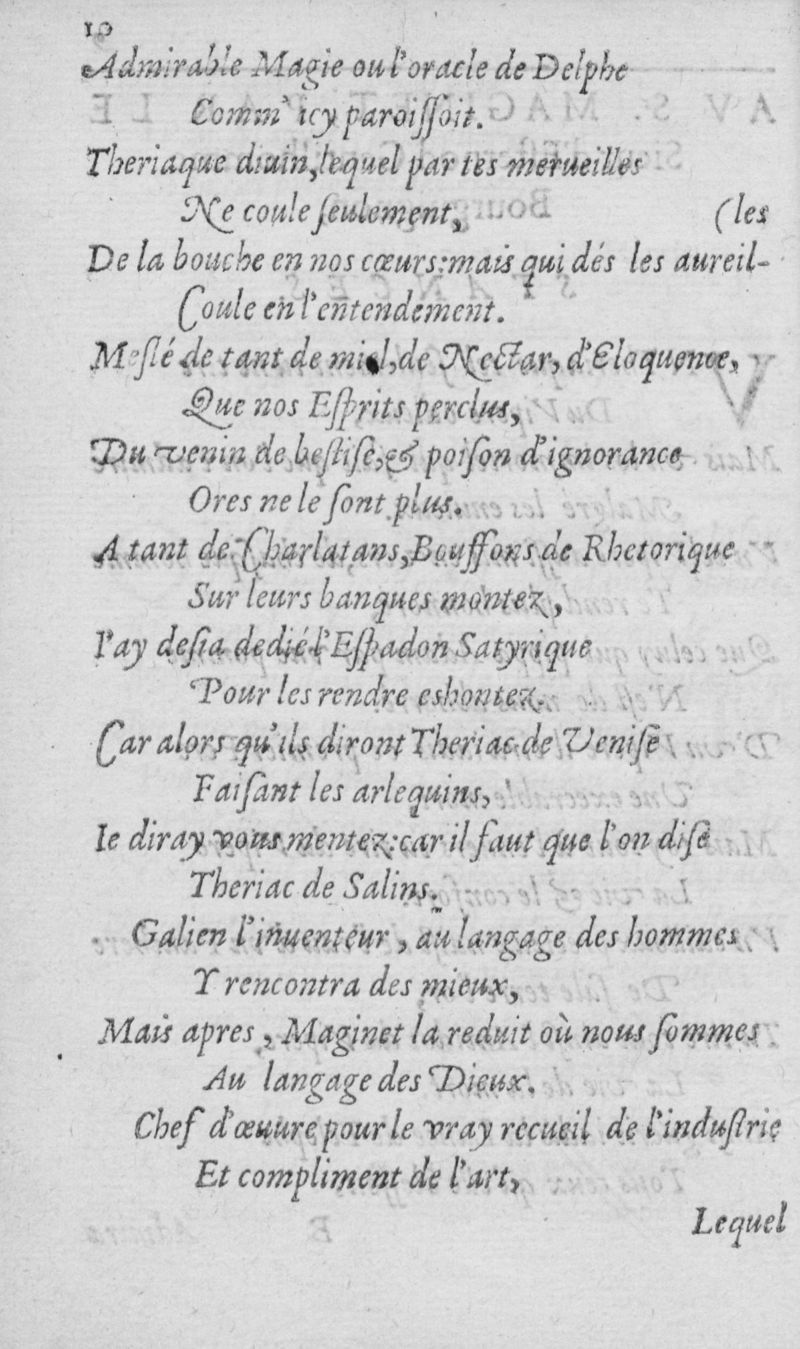 10
Admirable Magie ou l'oracle de Delphe
Comm' icy paroiſſoit.
Theriaque diuin, lequel par tes merueilles
Ne coule ſeulement, (les
De la bouche en nos cœurs: mais qui dés les aureil-
Coule en l'entendement.
Meſlé de tant de miel, de Nectar, d'Eloquence,
Que nos Eſprits perclus,
Du venin de beſtiſe, & poiſon d'ignorance
Ores ne le ſont plus.
A tant de Charlatans, Bouffons de Rhetorique
Sur leurs banques montez,
I'ay deſia dedié l'Eſpadon Satyrique
Pour les rendre eshontez.
Car alors qu'ils diront Theriac de Veniſe
Faiſant les arlequins,
Ie diray vous mentez: car il faut que l'on diſe
Theriac de Salins.
Galien l'inuenteur, au langage des hommes
Y rencontra des mieux,
Mais apres, Maginet la reduit où nous ſommes
Au langage des Dieux.
Chef d'œuure pour le vray recueil de l'induſtrie
Et compliment de l'art,
Lequel